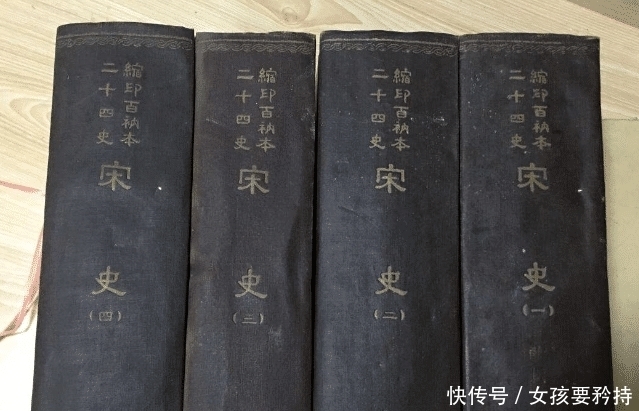 縮印百衲本
二十四史
宋史
(一)
縮印百衲本
二十四史
宋史
(二)
縮印百衲本
二十四史
宋史
(三)
縮印百衲本
二十四史
宋史
(四)
快传号/女孩要矜持